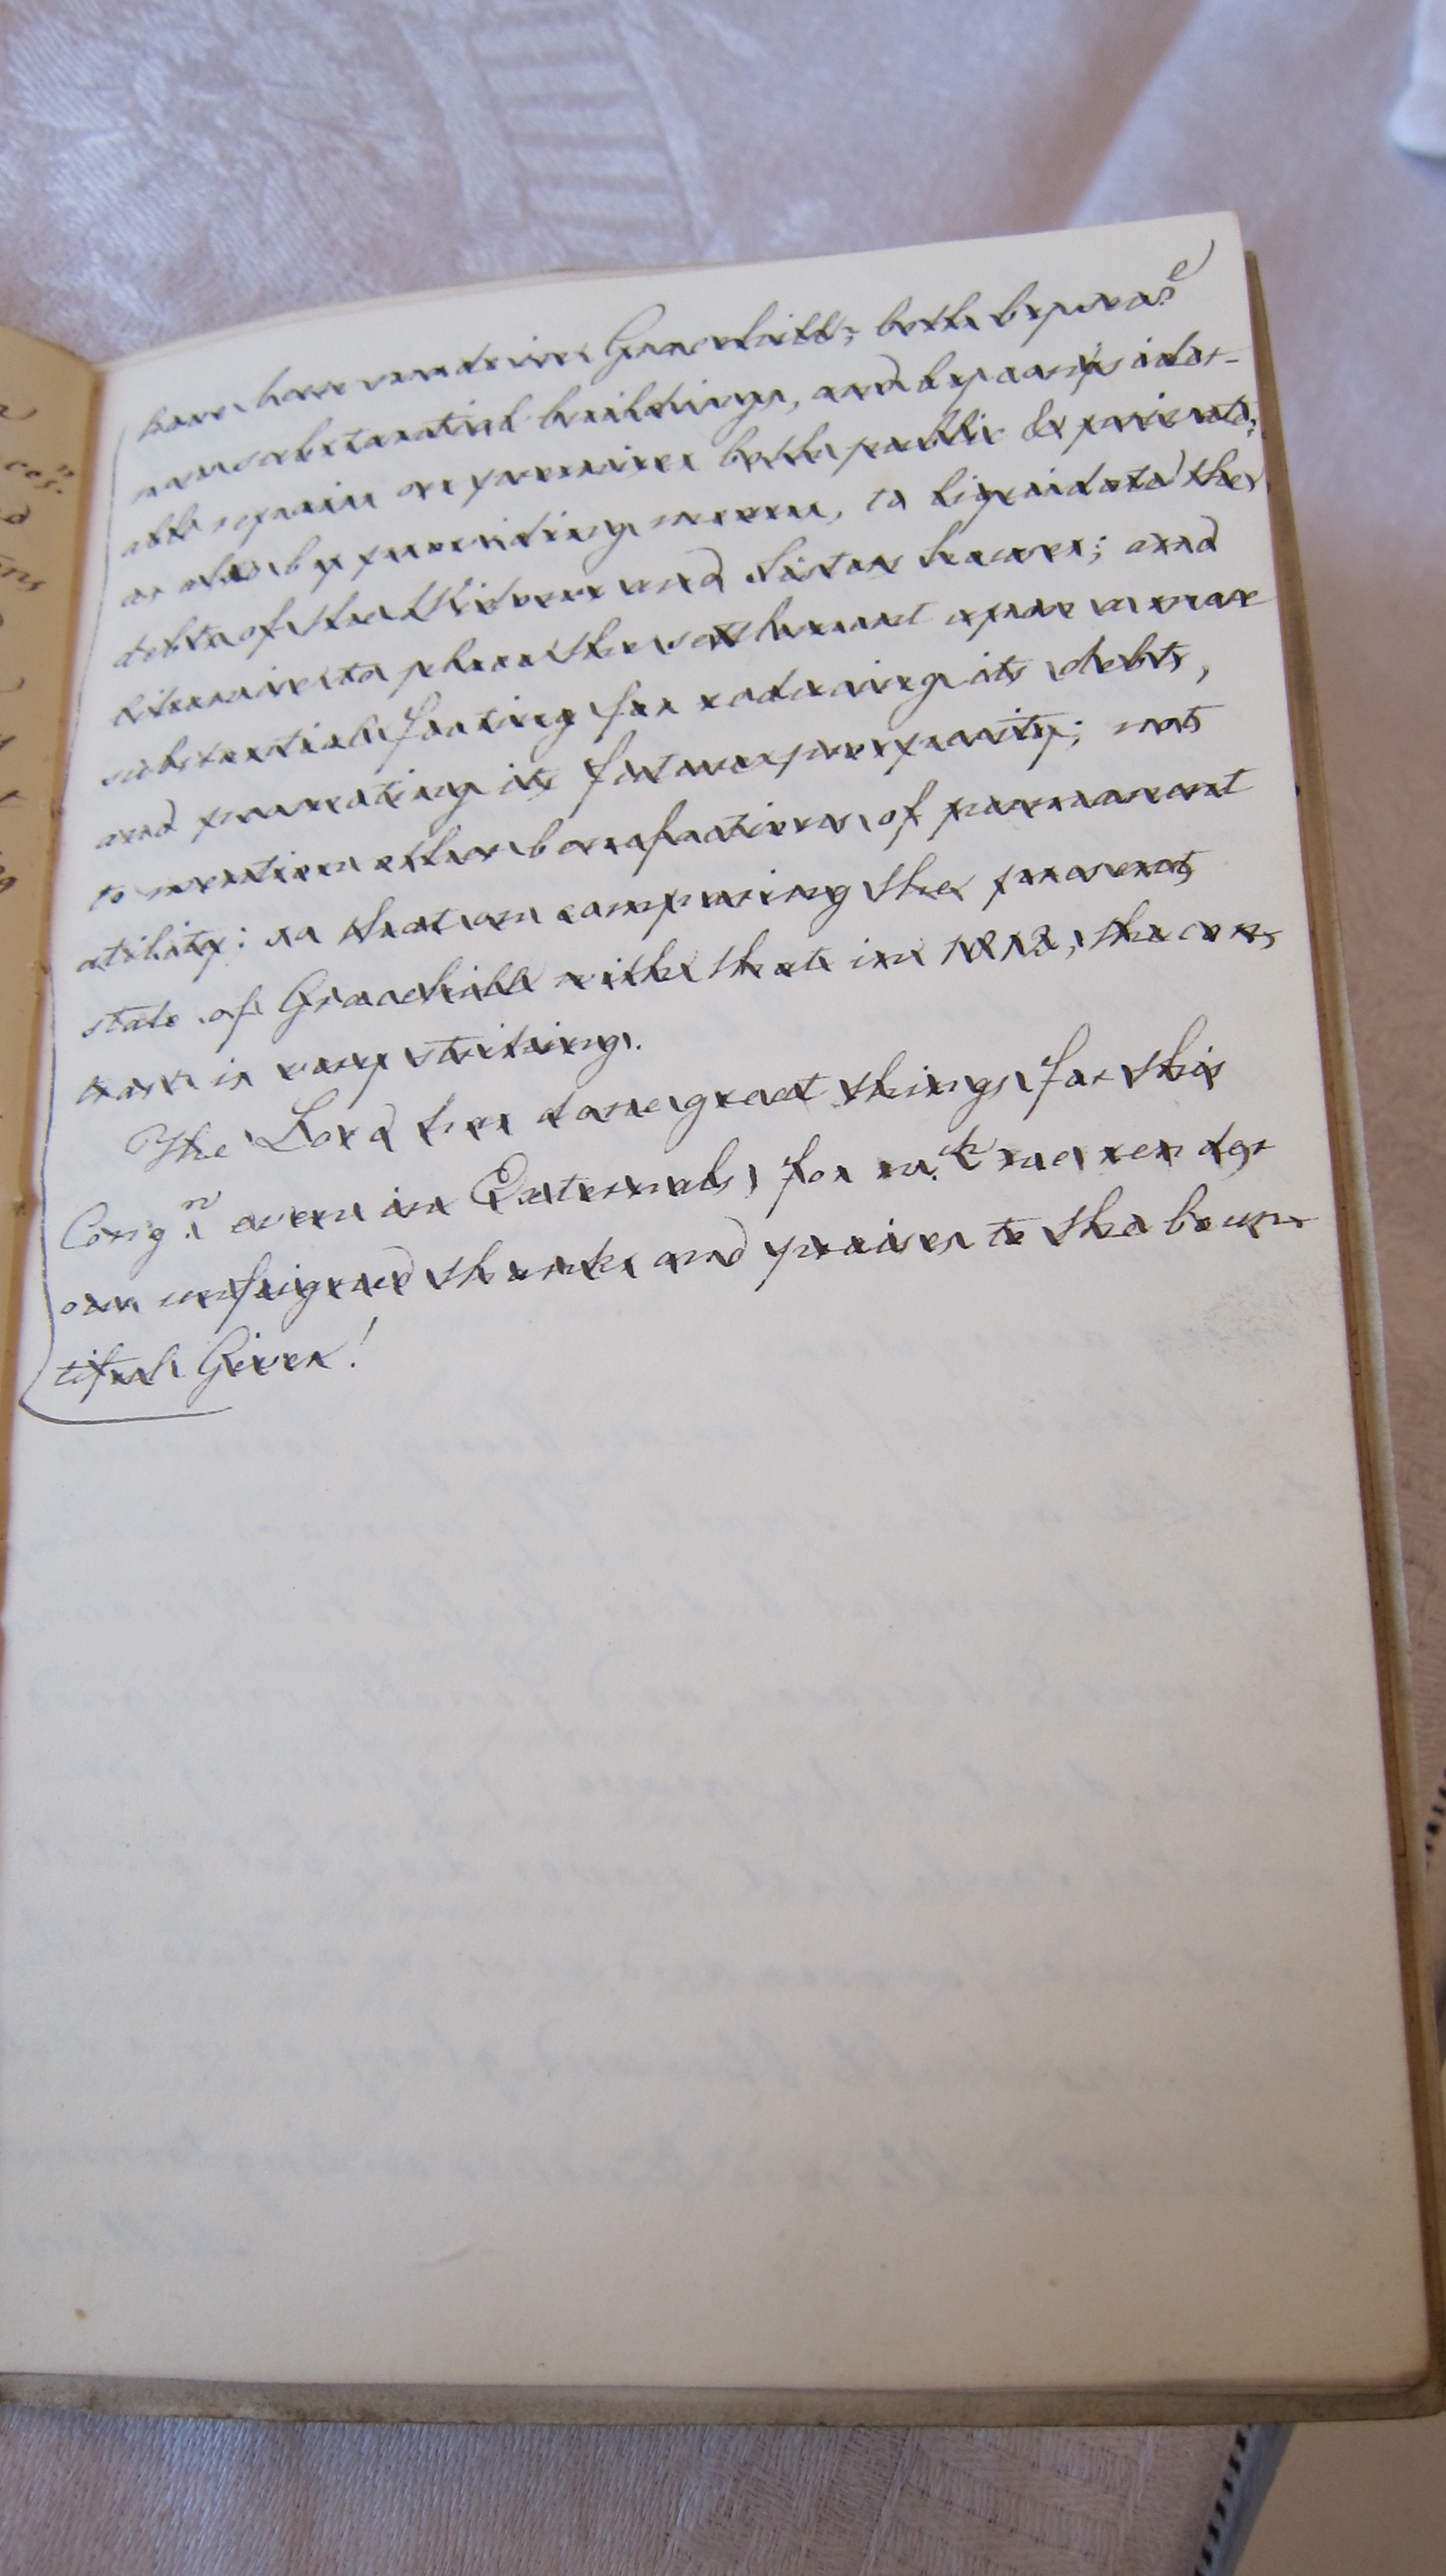 have been rendered Gracehill; both by era^e
new substantial buildings, and by consider-
able repairs on premises both public & private;
as also by providing means, to liquidate the
debts of the Widows and Sisters houses; and
likewise to place the settlement upon a more
substantial footing for reducing its debts,
and promoting its future prosperity; not
to mention other benefactions of permanent
utility: so that on comparing the present
state of Gracehill with that in 1812, the con-
trast is very striking.
The Lord has done great things for this
Cong.^n even in Externals, for w.^h we render
our unfeigned thanks and praises to the boun-
tiful Giver!